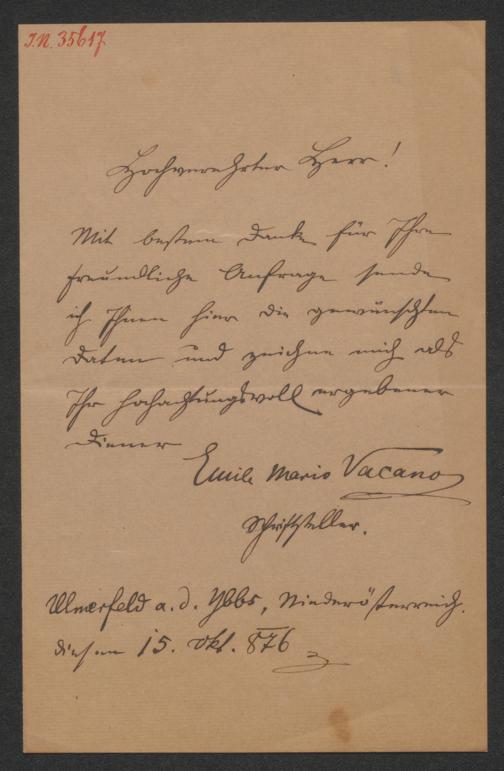 J.N. 35617
Hochverehrter Herr!
Mit bestem Danke für Ihre
freundliche Anfrage sende
ich Ihnen hier die gewünschten
Daten und zeichne mich als
Ihr hochachtungsvoll ergebener
Diener
Emile Mario Vacano
Schriftsteller.
Ulmerfeld a. d. Ybbs, Niederösterreich.
diesen 15. Okt. 876